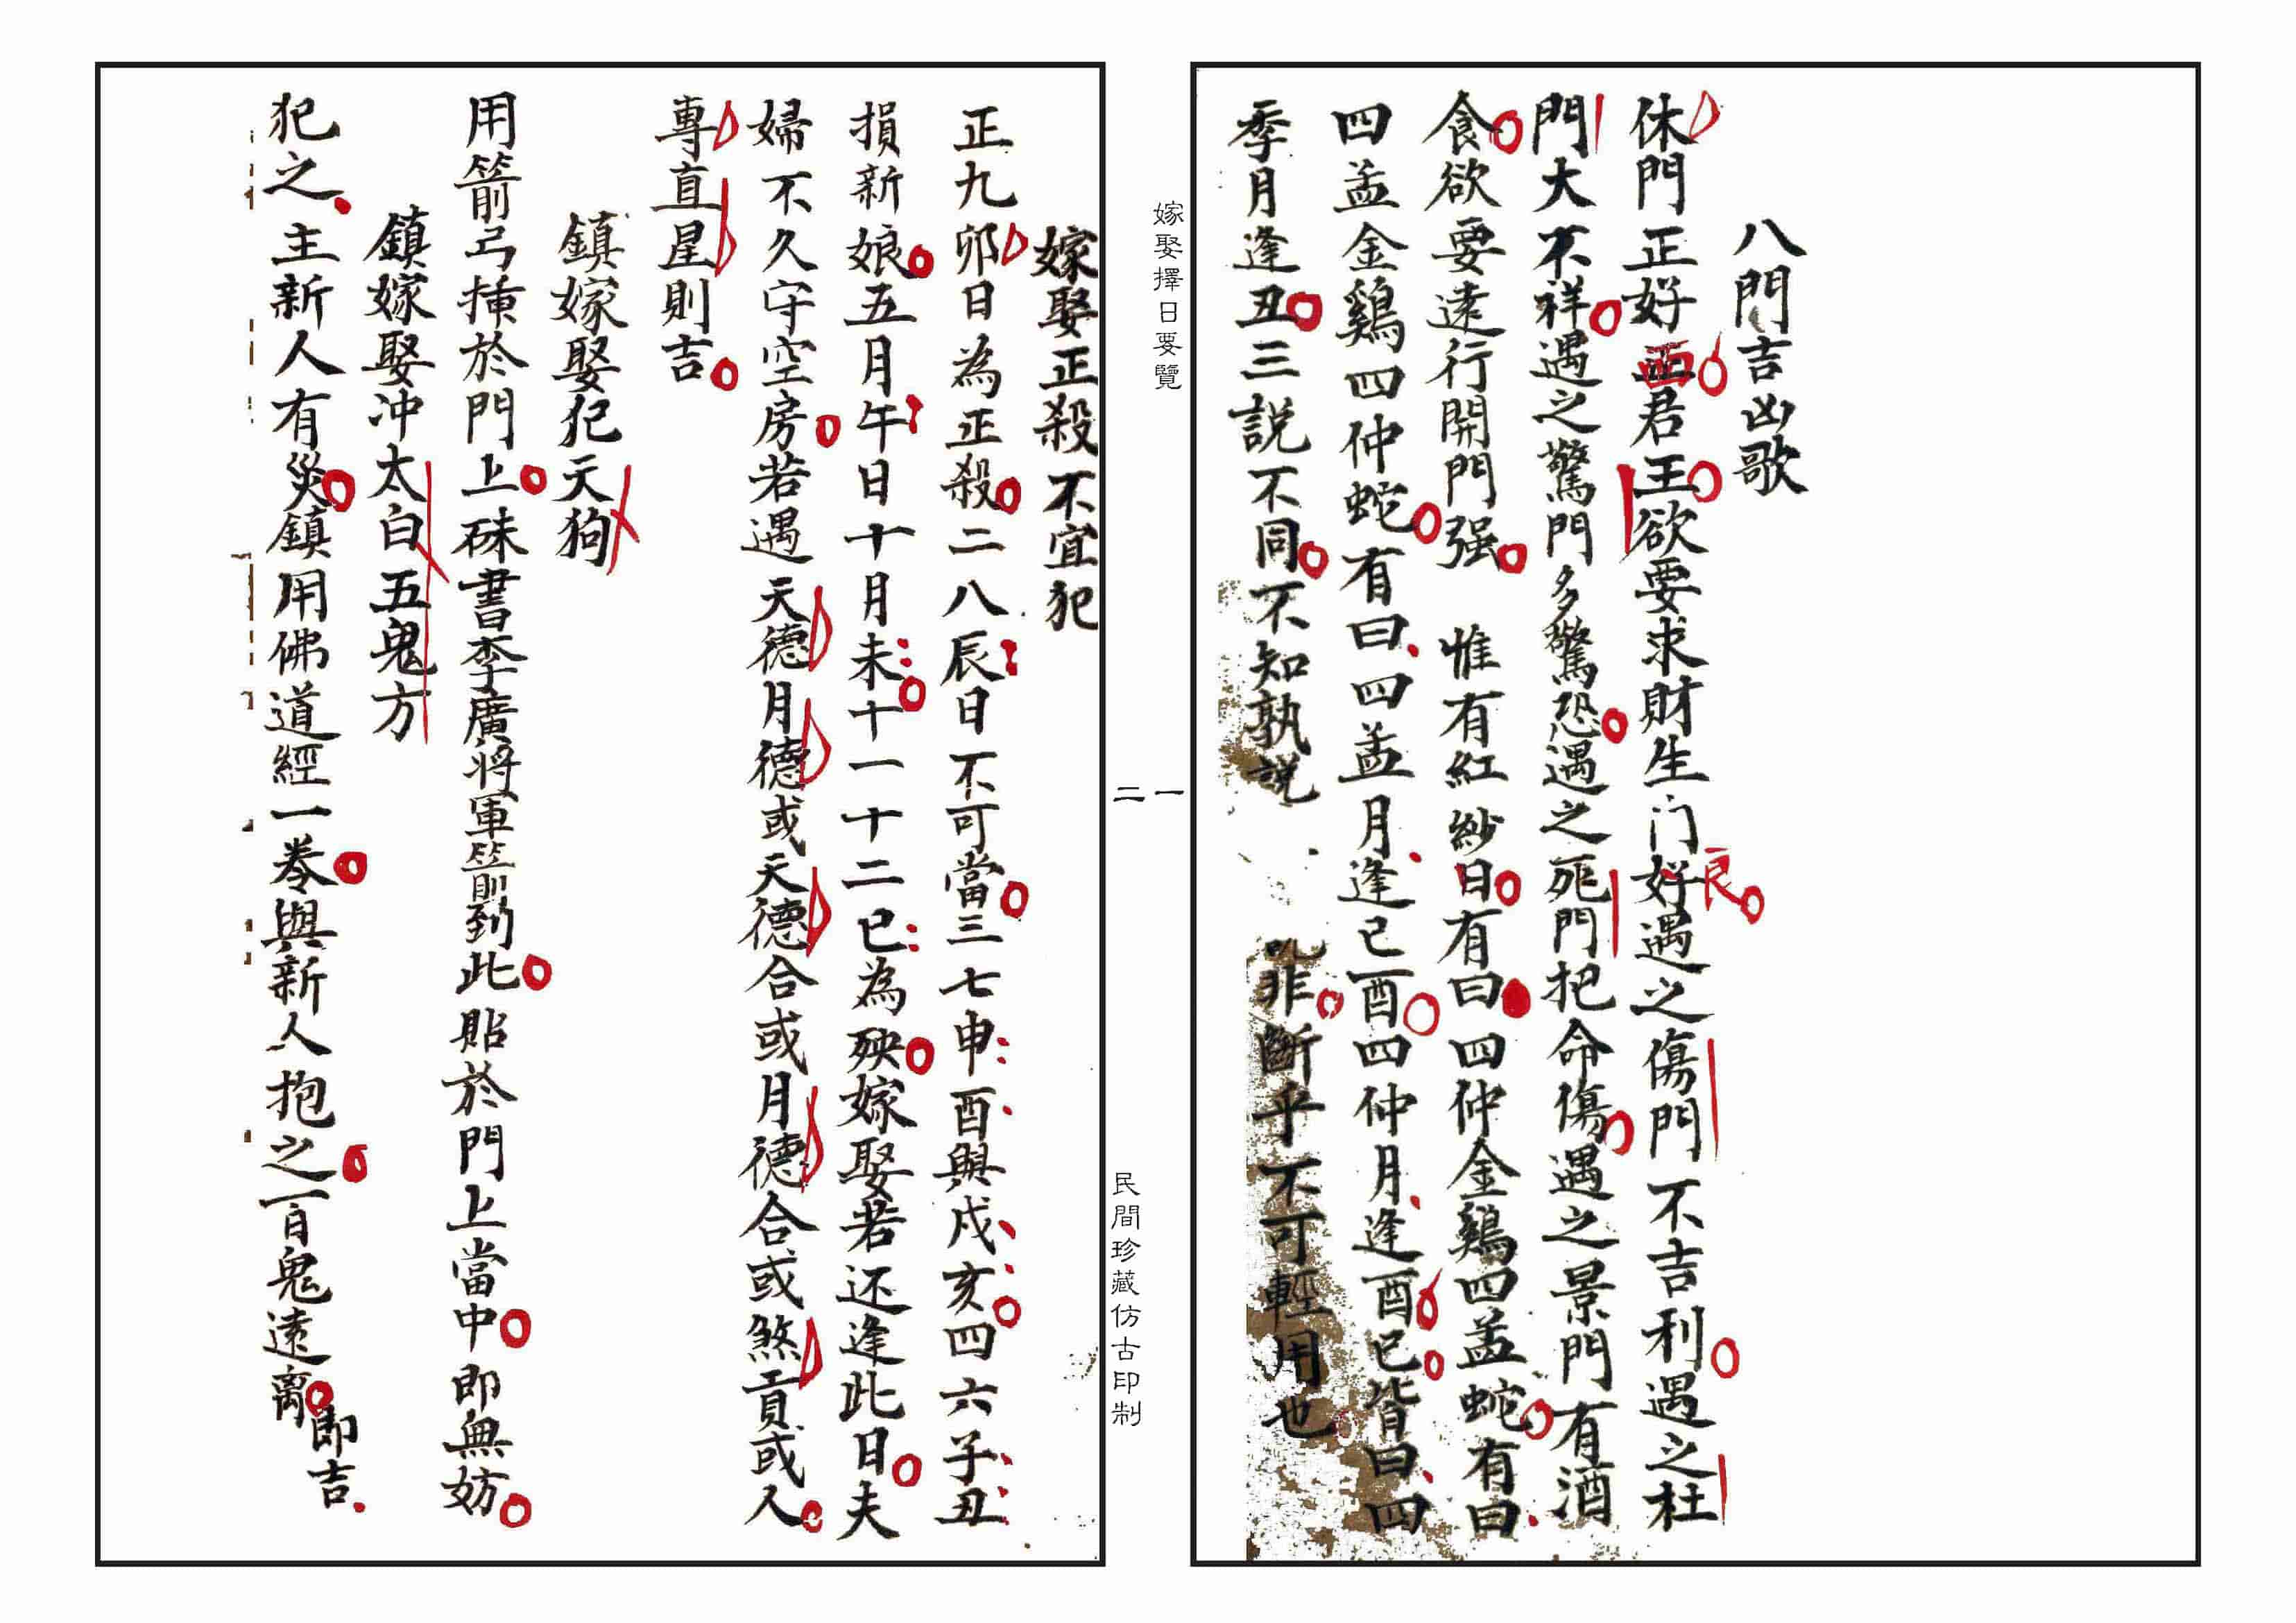 八門吉凶歌
休門正好面君王欲要求財生门好良遇之傷門不吉利遇之杜
門大不祥遇之驚門多驚恐遇之死門把命傷遇之景門有酒
食欲要遠行開門强惟有紅紗日有曰四仲金鷄四孟蛇有曰
四孟金鷄四仲蛇有曰四孟月逢已酉四仲月逢酉已皆曰四
季月逢丑三説不同不知孰説非斷乎不可輕用也
嫁娶擇日要覽
一
二
民間珍藏仿古印制
嫁娶正殺不宜犯
正九卯日為正殺二八辰日不可當三七申酉與戍亥四六子丑
損新娘五月午日十月未十一十二已為殃嫁娶若还逢此日夫
婦不久守空房若遇天德月德或天德合或月德合或煞貢或人
專直星則吉
鎮嫁娶犯天狗
用箭弓掛於門上硃書李廣將軍箭到此貼於門上當中即無妨
鎮嫁娶冲太白五鬼方
犯之主新人有災鎮用佛道經一卷與新人抱之百鬼遠离即吉